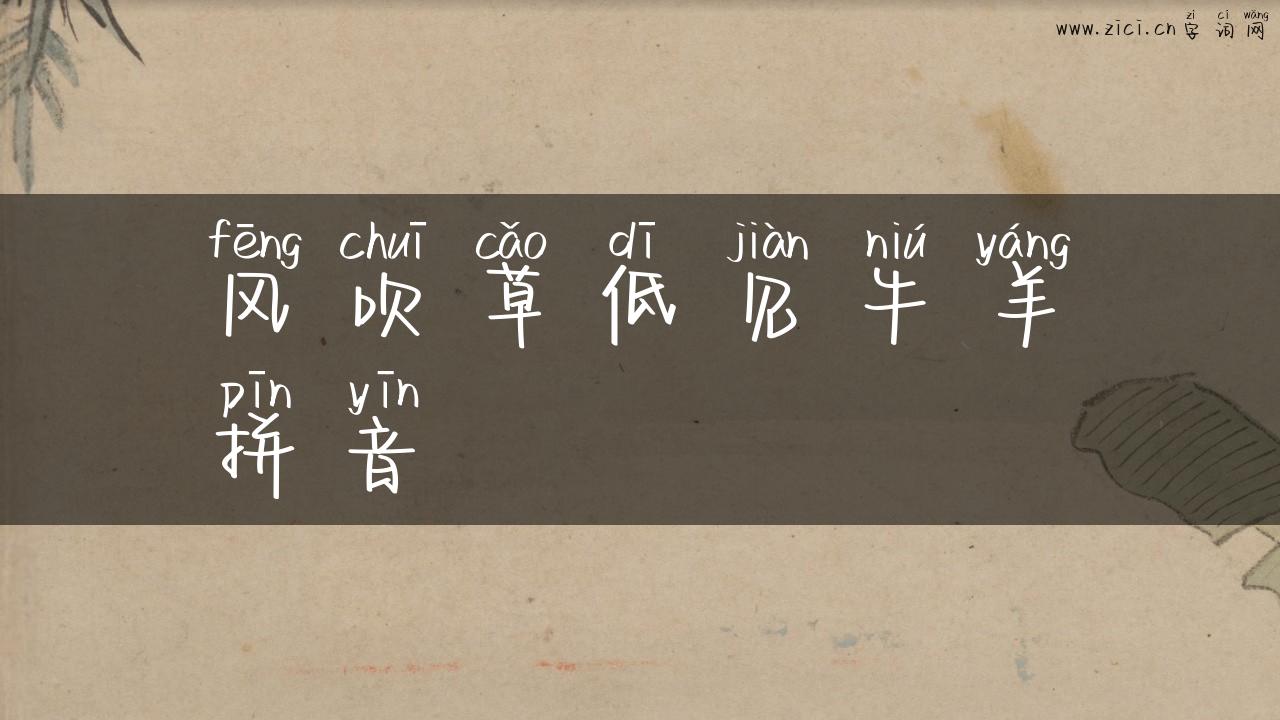 www.zici.cn zì cí wǎng 字词网
fēng chuī cǎo dī jiàn niú yáng
风吹草低见牛羊
pīn yīn
拼音